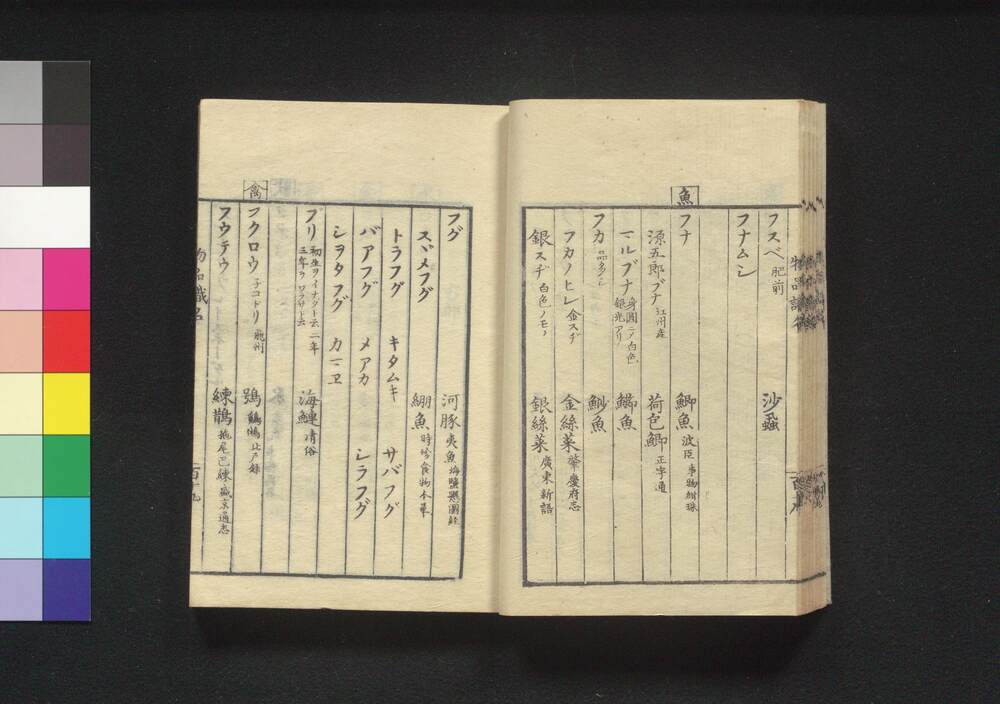 フスベ 肥前
フナムシ 沙蝨
魚
フナ 鯽魚 波臣 事物紺珠
源五郎ブナ 江州産 荷包鯽 正字通
マルブナ 身圓ニノ白色 銀光アリ 鱊魚
フカ 品多クシ 魦魚
フカノヒレ 金スヂ 金絲菜 肇慶府志
銀スヂ 白色ノモノ 銀絲菜 廣東新語
フグ 河豚 夷魚 海塩縣圖経
スヾメフグ 綳魚 時珍食物本草
トラフグ キタムキ サバフグ
バアフグ メアカ シラフグ
シヲタフグ カマヱ
ブリ 初生ヲイナタト云 二年三年ヲワラサト云 海鰱 清俗
禽
フクロウ 子コドリ 鵄 鵂鶹
フウテウ 練鵲 拖尾巴練 盛京通志
物品識名
百十九